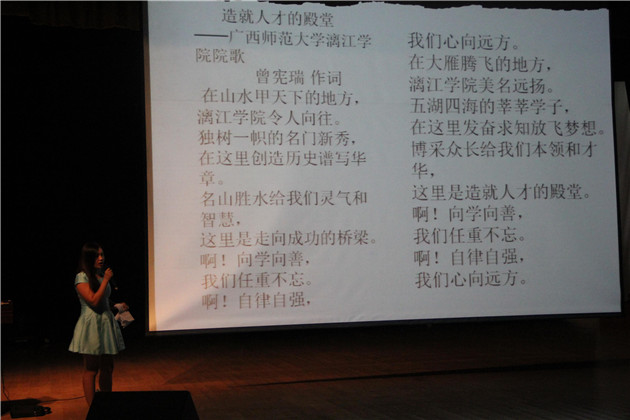 造就人才的殿堂
——广西师范大学漓江学
院院歌
曾宪瑞 作词
在山水甲天下的地方，
漓江学院令人向往。
独树一帜的名门新秀，
在这里创造历史谱写华
章。
名山胜水给我们灵气和
智慧，
这里是走向成功的桥梁。
啊！向学向善，
我们任重不忘。
啊！自律自强，
我们心向远方。
在大雁腾飞的地方，
漓江学院美名远扬。
五湖四海的莘莘学子，
在这里发奋求知放飞梦想。
博采众长给我们本领和才
华，
这里是造就人才的殿堂。
啊！向学向善，
我们任重不忘。
啊！自律自强，
我们心向远方。